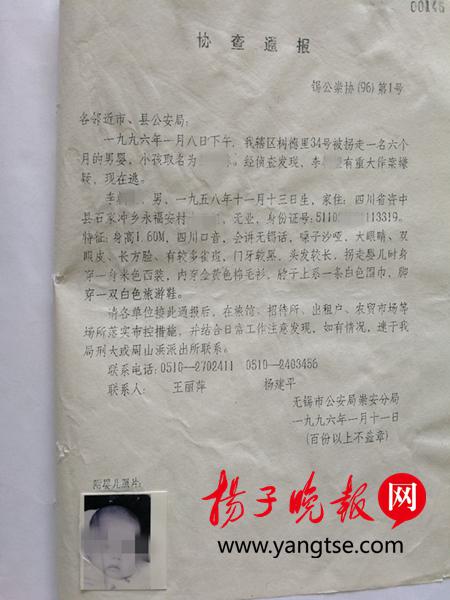 00145
协查通报
锡公崇协(96)第1号
各邻近市、县公安局:
一九九六年一月八日下午,我辖区树德里34号被拐走一名六个
月的男婴,小孩取名为 。经侦查发现,李 有重大作案嫌
疑,现在逃。
李 ,男,一九五八年十一月十三日生,家住:四川省资中
县石家冲乡永福安村 ,无业,身份证号:5110 113319。
特征:身高1.60M,四川口音,会讲无锡话,嗓子沙哑,大眼睛、双
眼皮、长方脸、有较多雀斑,门牙较黑,头发较长,拐走婴儿时身
穿一身米色西装,内穿金黄色棉毛衫,脖子上系一条白色围巾,脚
穿一双白色旅游鞋。
请各单位接此通报后,在旅馆、招待所、出租户、农贸市场等
场所落实布控措施,并结合日常工作注意发现,如有情况,速于我
局刑大或周山浜派出所联系。
联系电话:0510—2702411 0510—2403456
联系人: 王丽萍 杨建平
无锡市公安局崇安分局
一九九六年一月十一日
(百份以上不盖章)
附婴儿照片:
扬子晚报网
www.yangtse.com